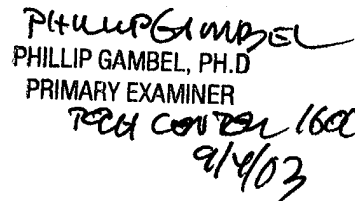 PHILLIP GAMBEL
PHILLIP GAMBEL, PH.D
PRIMARY EXAMINER
TECH CENTER 1600
9/4/03